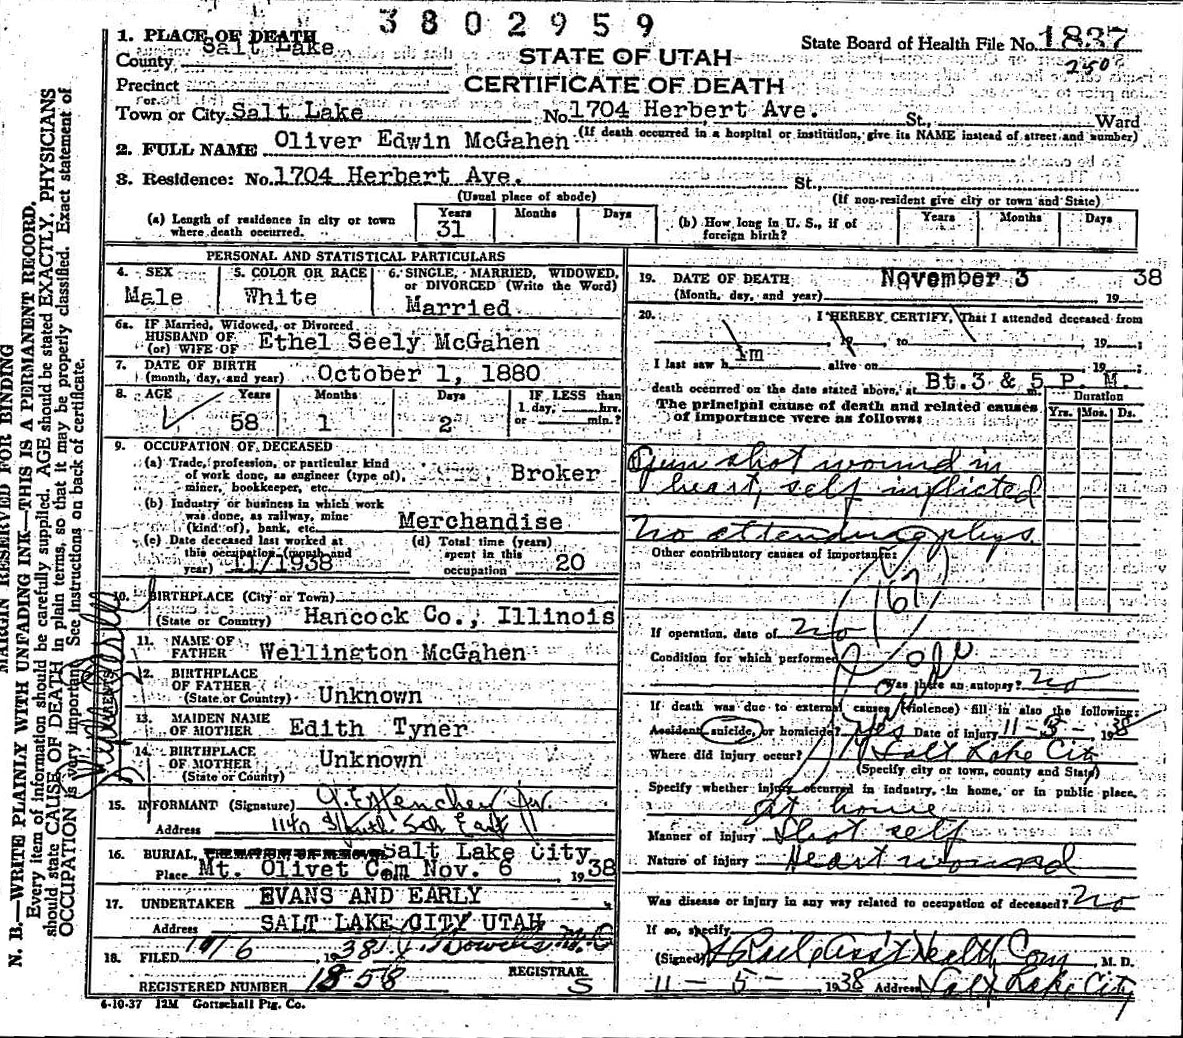 3802959
1. PLACE OF DEATH
County Salt Lake
STATE OF UTAH
CERTIFICATE OF DEATH
State Board of Health File No. 1837
250
Precinct
or
Town or City Salt Lake No. 1704 Herbert Ave. St., Ward
(If death occurred in a hospital or institution, give its NAME instead of street and number)
2. FULL NAME Oliver Edwin McGahen
3. Residence: No. 1704 Herbert Ave. St.,
(Usual place of abode) (If non-resident give city or town and State)
(a) Length of residence in city or town where death occurred. Years 31 Months Days
(b) How long in U. S., if of foreign birth? Years Months Days
PERSONAL AND STATISTICAL PARTICULARS
4. SEX Male
5. COLOR OR RACE White
6. SINGLE, MARRIED, WIDOWED, or DIVORCED (Write the Word) Married
6a. IF Married, Widowed, or Divorced
HUSBAND OF
(or) WIFE OF Ethel Seely McGahen
7. DATE OF BIRTH
(month, day, and year) October 1, 1880
8. AGE Years 58 Months 1 Days 2 IF LESS than 1 day, hrs. or min.?
9. OCCUPATION OF DECEASED
(a) Trade, profession, or particular kind of work done, as engineer (type of), miner, bookkeeper, etc. Broker
(b) Industry or business in which work was done, as railway, mine (kind of), bank, etc. Merchandise
(c) Date deceased last worked at this occupation (month and year) 11/1938
(d) Total time (years) spent in this occupation 20
10. BIRTHPLACE (City or Town)
(State or Country) Hancock Co., Illinois
PARENTS
11. NAME OF FATHER Wellington McGahen
12. BIRTHPLACE OF FATHER (State or Country) Unknown
13. MAIDEN NAME OF MOTHER Edith Tyner
14. BIRTHPLACE OF MOTHER (State or Country) Unknown
15. INFORMANT (Signature)
Address 1140 South 5th East
16. BURIAL, Salt Lake City
Place Mt. Olivet Cem Nov. 6 1938
17. UNDERTAKER EVANS AND EARLY
Address SALT LAKE CITY UTAH
18. FILED 11/6, 1938
REGISTRAR
REGISTERED NUMBER 1858 S
6-10-37 12M Gottschall Ptg. Co.
19. DATE OF DEATH November 3 38
(Month, day, and year) 19
20. I HEREBY CERTIFY, That I attended deceased from
, 19 , to , 19 ;
I last saw him alive on , 19 ;
death occurred on the date stated above, at Bt. 3 & 5 P. M. m.
The principal cause of death and related causes of importance were as follows:
Duration
Yrs. Mos. Ds.
Gun shot wound in
heart, self inflicted
No attending phys.
Other contributory causes of importance:
167
If operation, date of no
Condition for which performed
Was there an autopsy? no
If death was due to external causes (violence) fill in also the following:
Accident, suicide, or homicide? yes Date of injury 11-3-1938
Where did injury occur? Salt Lake City
(Specify city or town, county and State)
Specify whether injury occurred in industry, in home, or in public place,
at home
Manner of injury Shot self
Nature of injury Heart wound
Was disease or injury in any way related to occupation of deceased? no
If so, specify
(Signed) Ass't Health Com, M. D.
11-5-1938 Address Salt Lake City
MARGIN RESERVED FOR BINDING
N. B.—WRITE PLAINLY WITH UNFADING INK—THIS IS A PERMANENT RECORD.
Every item of information should be carefully supplied. AGE should be stated EXACTLY. PHYSICIANS
should state CAUSE OF DEATH in plain terms, so that it may be properly classified. Exact statement of
OCCUPATION is very important. See instructions on back of certificate.